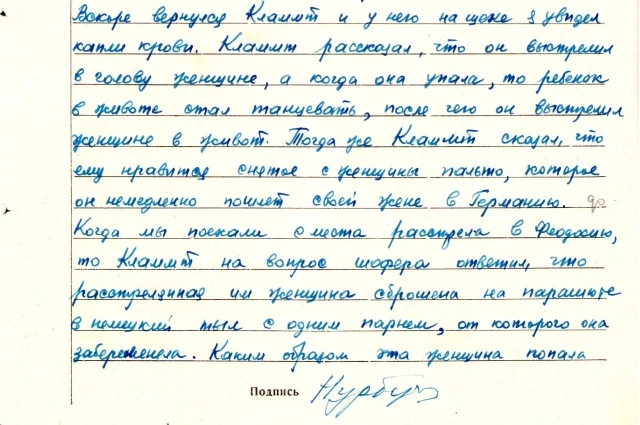 Вскоре вернулся Кламмт и у него на щеке я увидел
капли крови. Кламмт рассказал, что он выстрелил
в голову женщине, а когда она упала, то ребенок
в животе стал танцевать, после чего он выстрелил
женщине в живот. Тогда же Кламмт сказал, что
ему нравится снятое с женщины пальто, которое
он немедленно пошлет своей жене в Германию.
Когда мы поехали с места расстрела в Феодосию,
то Кламмт на вопрос шофера ответил, что
расстрелянная им женщина сброшена на парашюте
в немецкий тыл с одним парнем, от которого она
забеременела. Каким образом эта женщина попала
Подпись